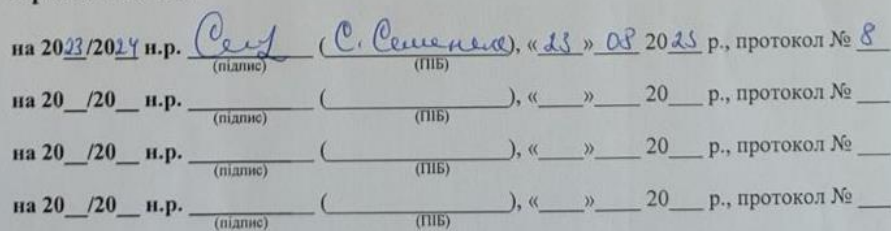 на 2023/2024 н.р. ______ (С. Семенела), «23» 08 2023 р., протокол № 8
(підпис) (ПІБ)
на 20__/20__ н.р. ______ (______), «___»____ 20___ р., протокол № ___
(підпис) (ПІБ)
на 20__/20__ н.р. ______ (______), «___»____ 20___ р., протокол № ___
(підпис) (ПІБ)
на 20__/20__ н.р. ______ (______), «___»____ 20___ р., протокол № ___
(підпис) (ПІБ)